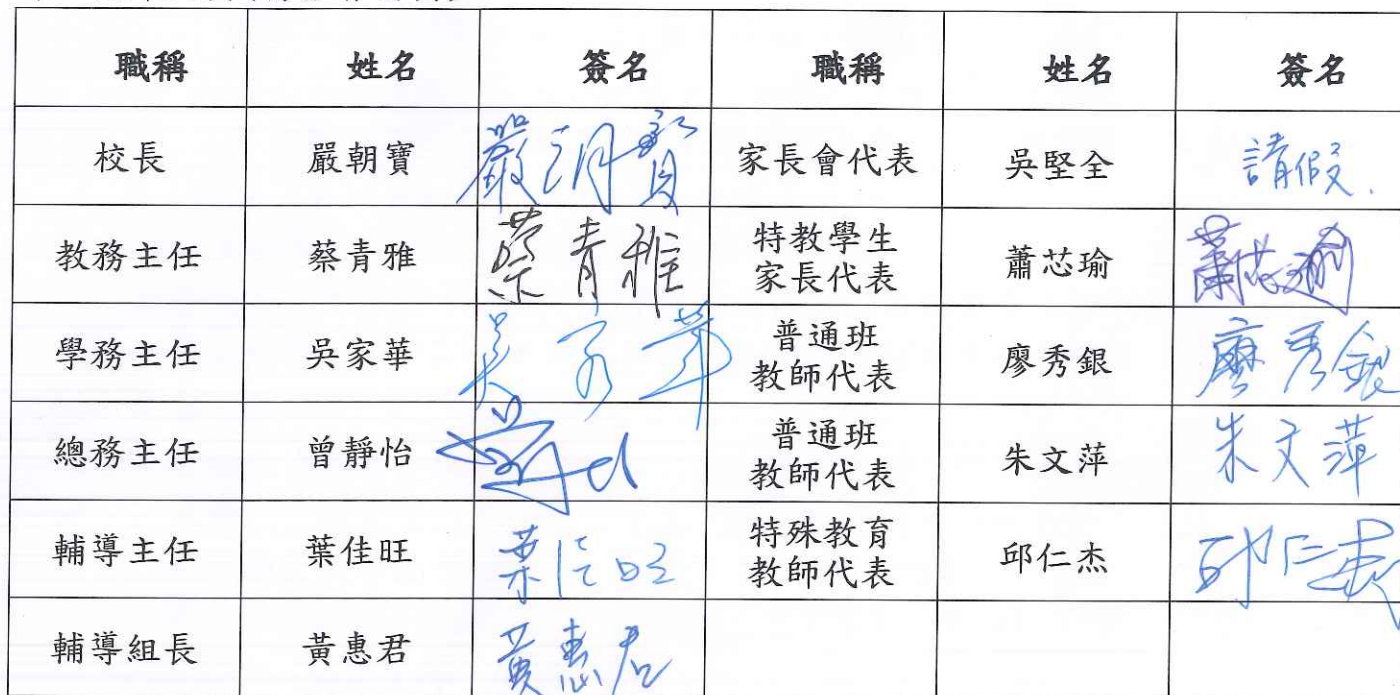 職稱 姓名 簽名 職稱 姓名 簽名
校長 嚴朝寶 嚴朝寶 家長會代表 吳堅全 請假.
教務主任 蔡青雅 蔡青雅 特教學生 家長代表 蕭芯瑜 蕭芯瑜
學務主任 吳家華 吳家華 普通班 教師代表 廖秀銀 廖秀銀
總務主任 曾靜怡 普通班 教師代表 朱文萍 朱文萍
輔導主任 葉佳旺 葉佳旺 特殊教育 教師代表 邱仁杰 邱仁杰
輔導組長 黃惠君 黃惠君